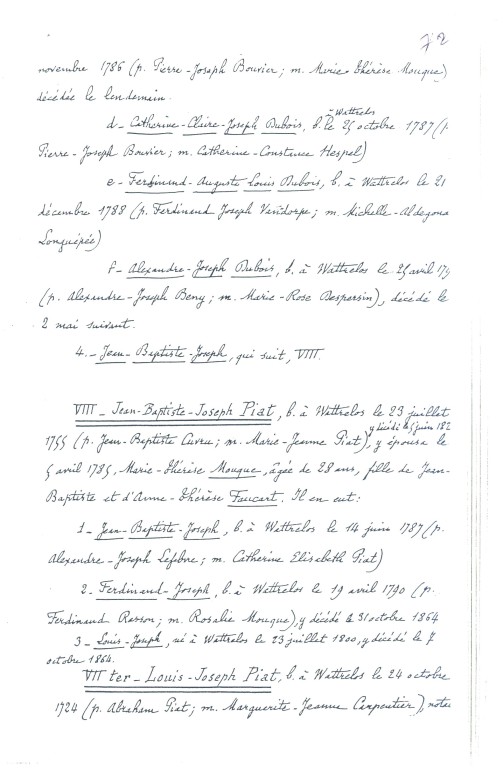 72
novembre 1786 (p. Pierre-Joseph Bouvier; m. Marie-Thérèse Mouque)
décédée le lendemain.
d- Catherine-Claire-Joseph Dubois, b. à Wattrelos le 25 octobre 1787 (p.
Pierre-Joseph Bouvier; m. Catherine-Constance Hespel)
e- Ferdinand-Auguste Louis Dubois, b. à Wattrelos le 21
décembre 1788 (p. Ferdinand Joseph Vandorpe; m. Michelle-Aldegona
Longuépée)
f- Alexandre-Joseph Dubois, b. à Wattrelos le 25 avril 179
(p. Alexandre-Joseph Beny; m. Marie-Rose Desparsin), décédé le
2 mai suivant.
4.- Jean-Baptiste-Joseph, qui suit, VIII.
VIII- Jean-Baptiste-Joseph Piat, b. à Wattrelos le 23 juillet
1755 (p. Jean-Baptiste Cuvru; m. Marie-Jeanne Piat), y décédé le 5 juin 182 y épousa le
5 avril 1785, Marie-Thérèse Mouque, âgée de 28 ans, fille de Jean-
Baptiste et d'Anne-Thérèse Faucart. Il en eut:
1- Jean-Baptiste-Joseph, b. à Wattrelos le 14 juin 1787 (p.
Alexandre-Joseph Lefebvre; m. Catherine Elisabeth Piat)
2- Ferdinand-Joseph, b. à Wattrelos le 19 avril 1790 (p.
Ferdinand Rasson; m. Rosalie Mouque), y décédé le 31 octobre 1864
3- Louis-Joseph, né à Wattrelos le 23 juillet 1800, y décédé le 7
octobre 1864.
VII ter- Louis-Joseph Piat, b. à Wattrelos le 24 octobre
1724 (p. Abraham Piat; m. Marguerite-Jeanne Carpentier), notai